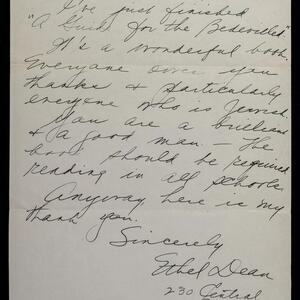 I've just finished
"A Guide for the Bedevilled"
It's a wonderful book.
Everyone owes you
thanks & particularly
everyone who is Jewish.
You are a brilliant
& a good man — The
book should be required
reading in all schools.
Anyway, here is my
thank you.
Sincerely
Ethel Dean
230 Central